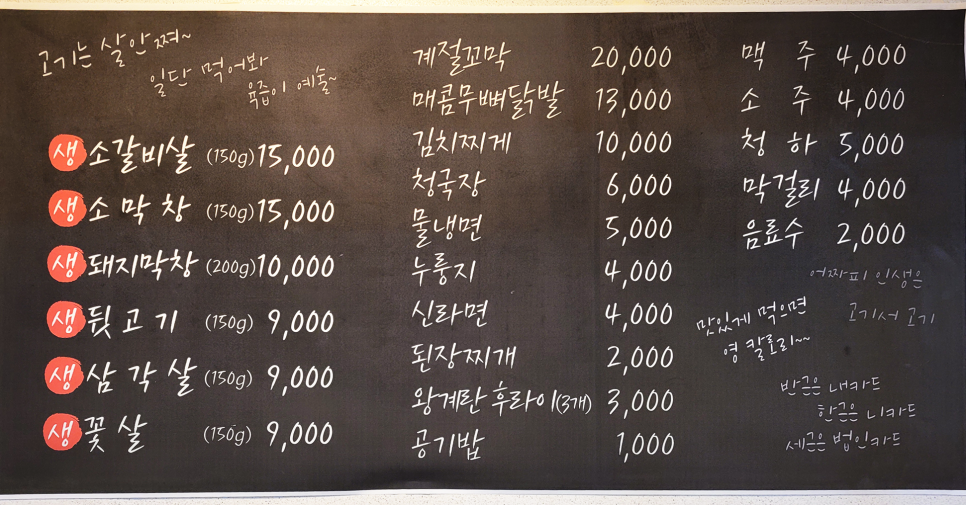 고기는 살 안 쪄~
일단 먹어봐
육즙이 예술~
생 소갈비살 (150g) 15,000
생 소막창 (150g) 15,000
생 돼지막창 (200g) 10,000
생 뒷고기 (150g) 9,000
생 삼각살 (150g) 9,000
생 꽃살 (150g) 9,000
계절꼬막 20,000
매콤무뼈닭발 13,000
김치찌게 10,000
청국장 6,000
물냉면 5,000
누룽지 4,000
신라면 4,000
된장찌개 2,000
왕계란 후라이(3개) 3,000
공기밥 1,000
맥주 4,000
소주 4,000
청하 5,000
막걸리 4,000
음료수 2,000
어짜피 인생은
고기서 고기
맛있게 먹으면
영 칼로리~~
반근은 내카드
한근은 니카드
세근은 법인카드